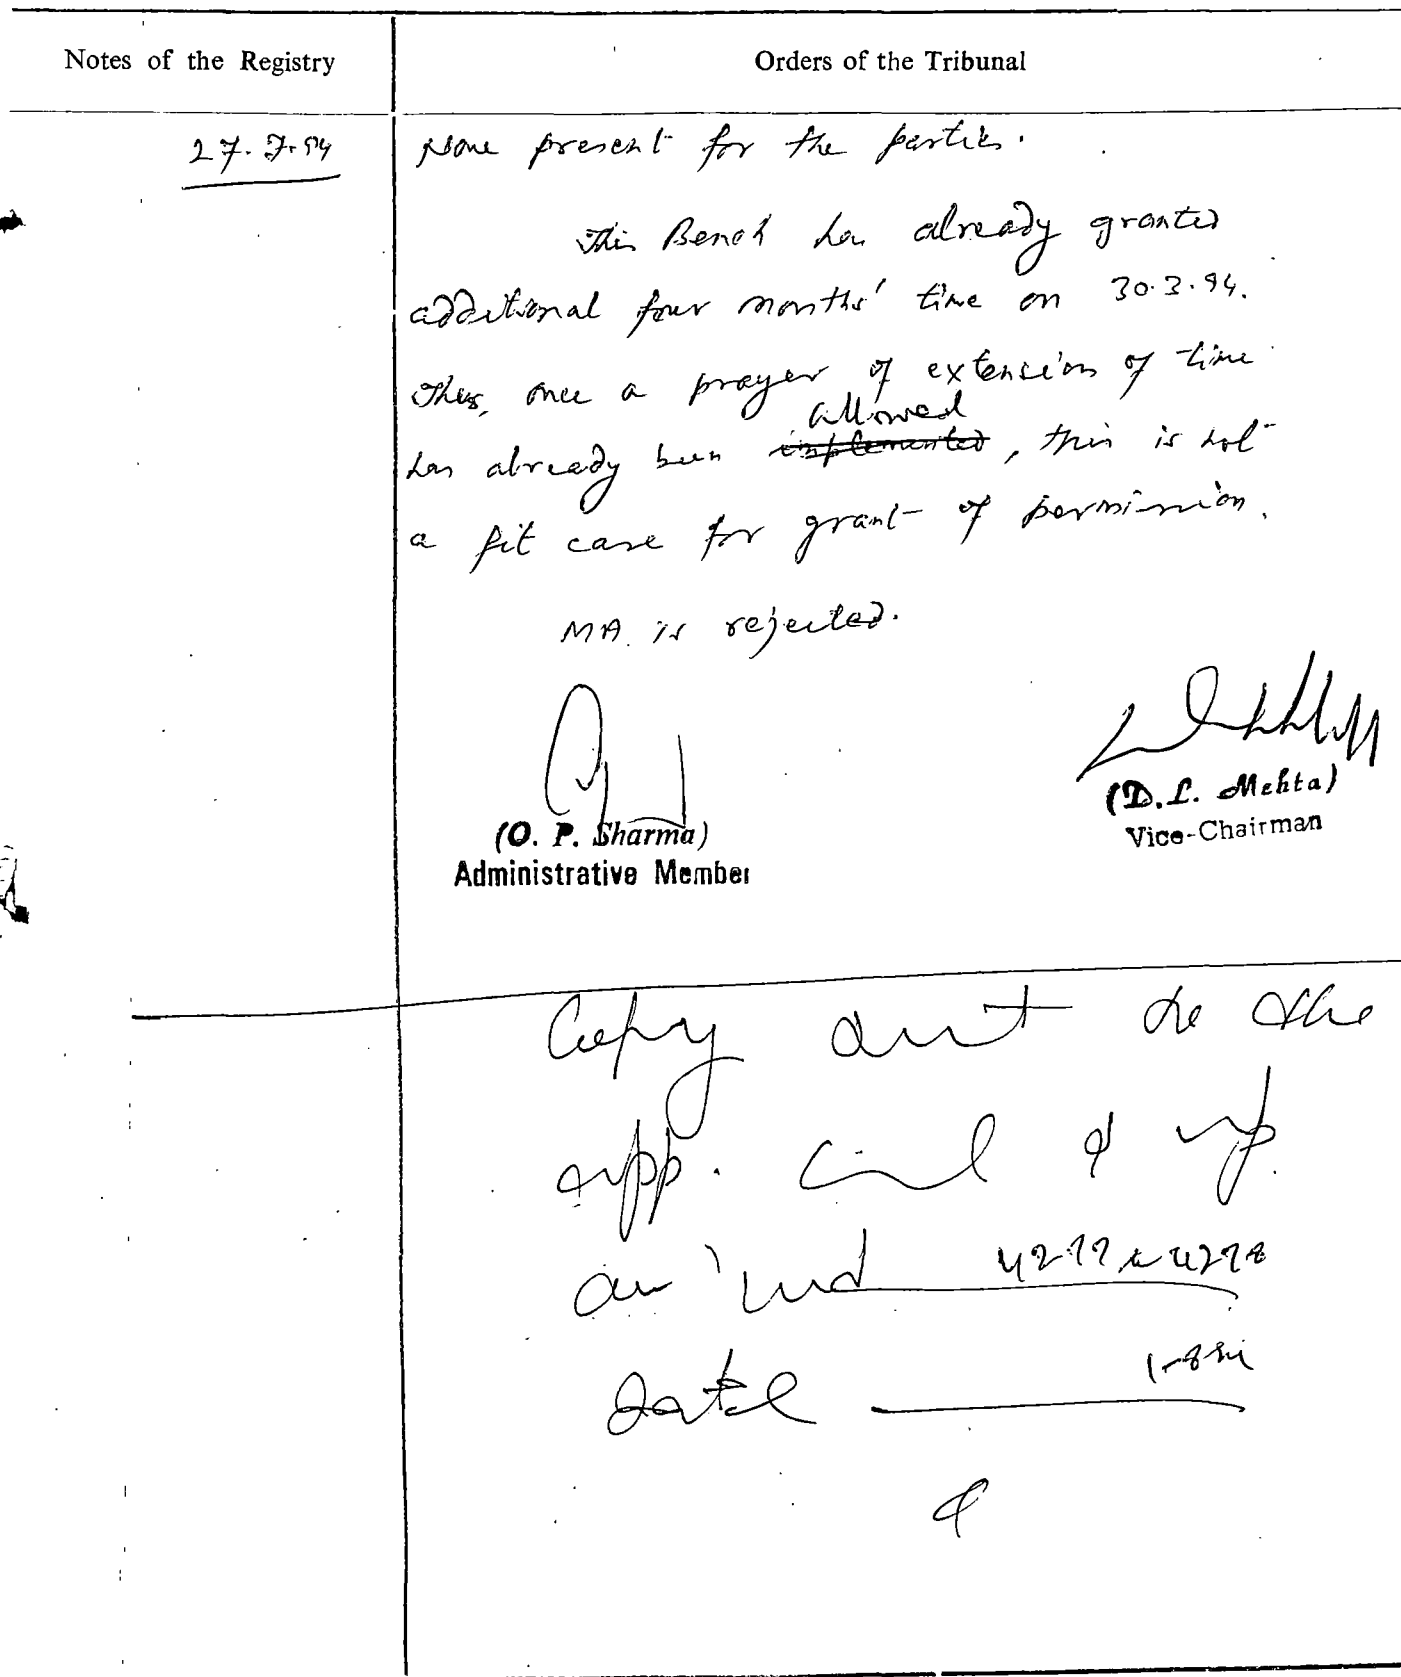 Notes of the Registry
Orders of the Tribunal
27.7.94
None present for the parties.
This Bench has already granted
additional four months' time on 30.3.94.
Thus, once a prayer of extension of time
has already been implemented allowed, this is not
a fit case for grant of permission.
MA is rejected.
(O. P. Sharma)
Administrative Member
(D. L. Mehta)
Vice-Chairman
Copy sent to the
app.
4277 to 4278
dated